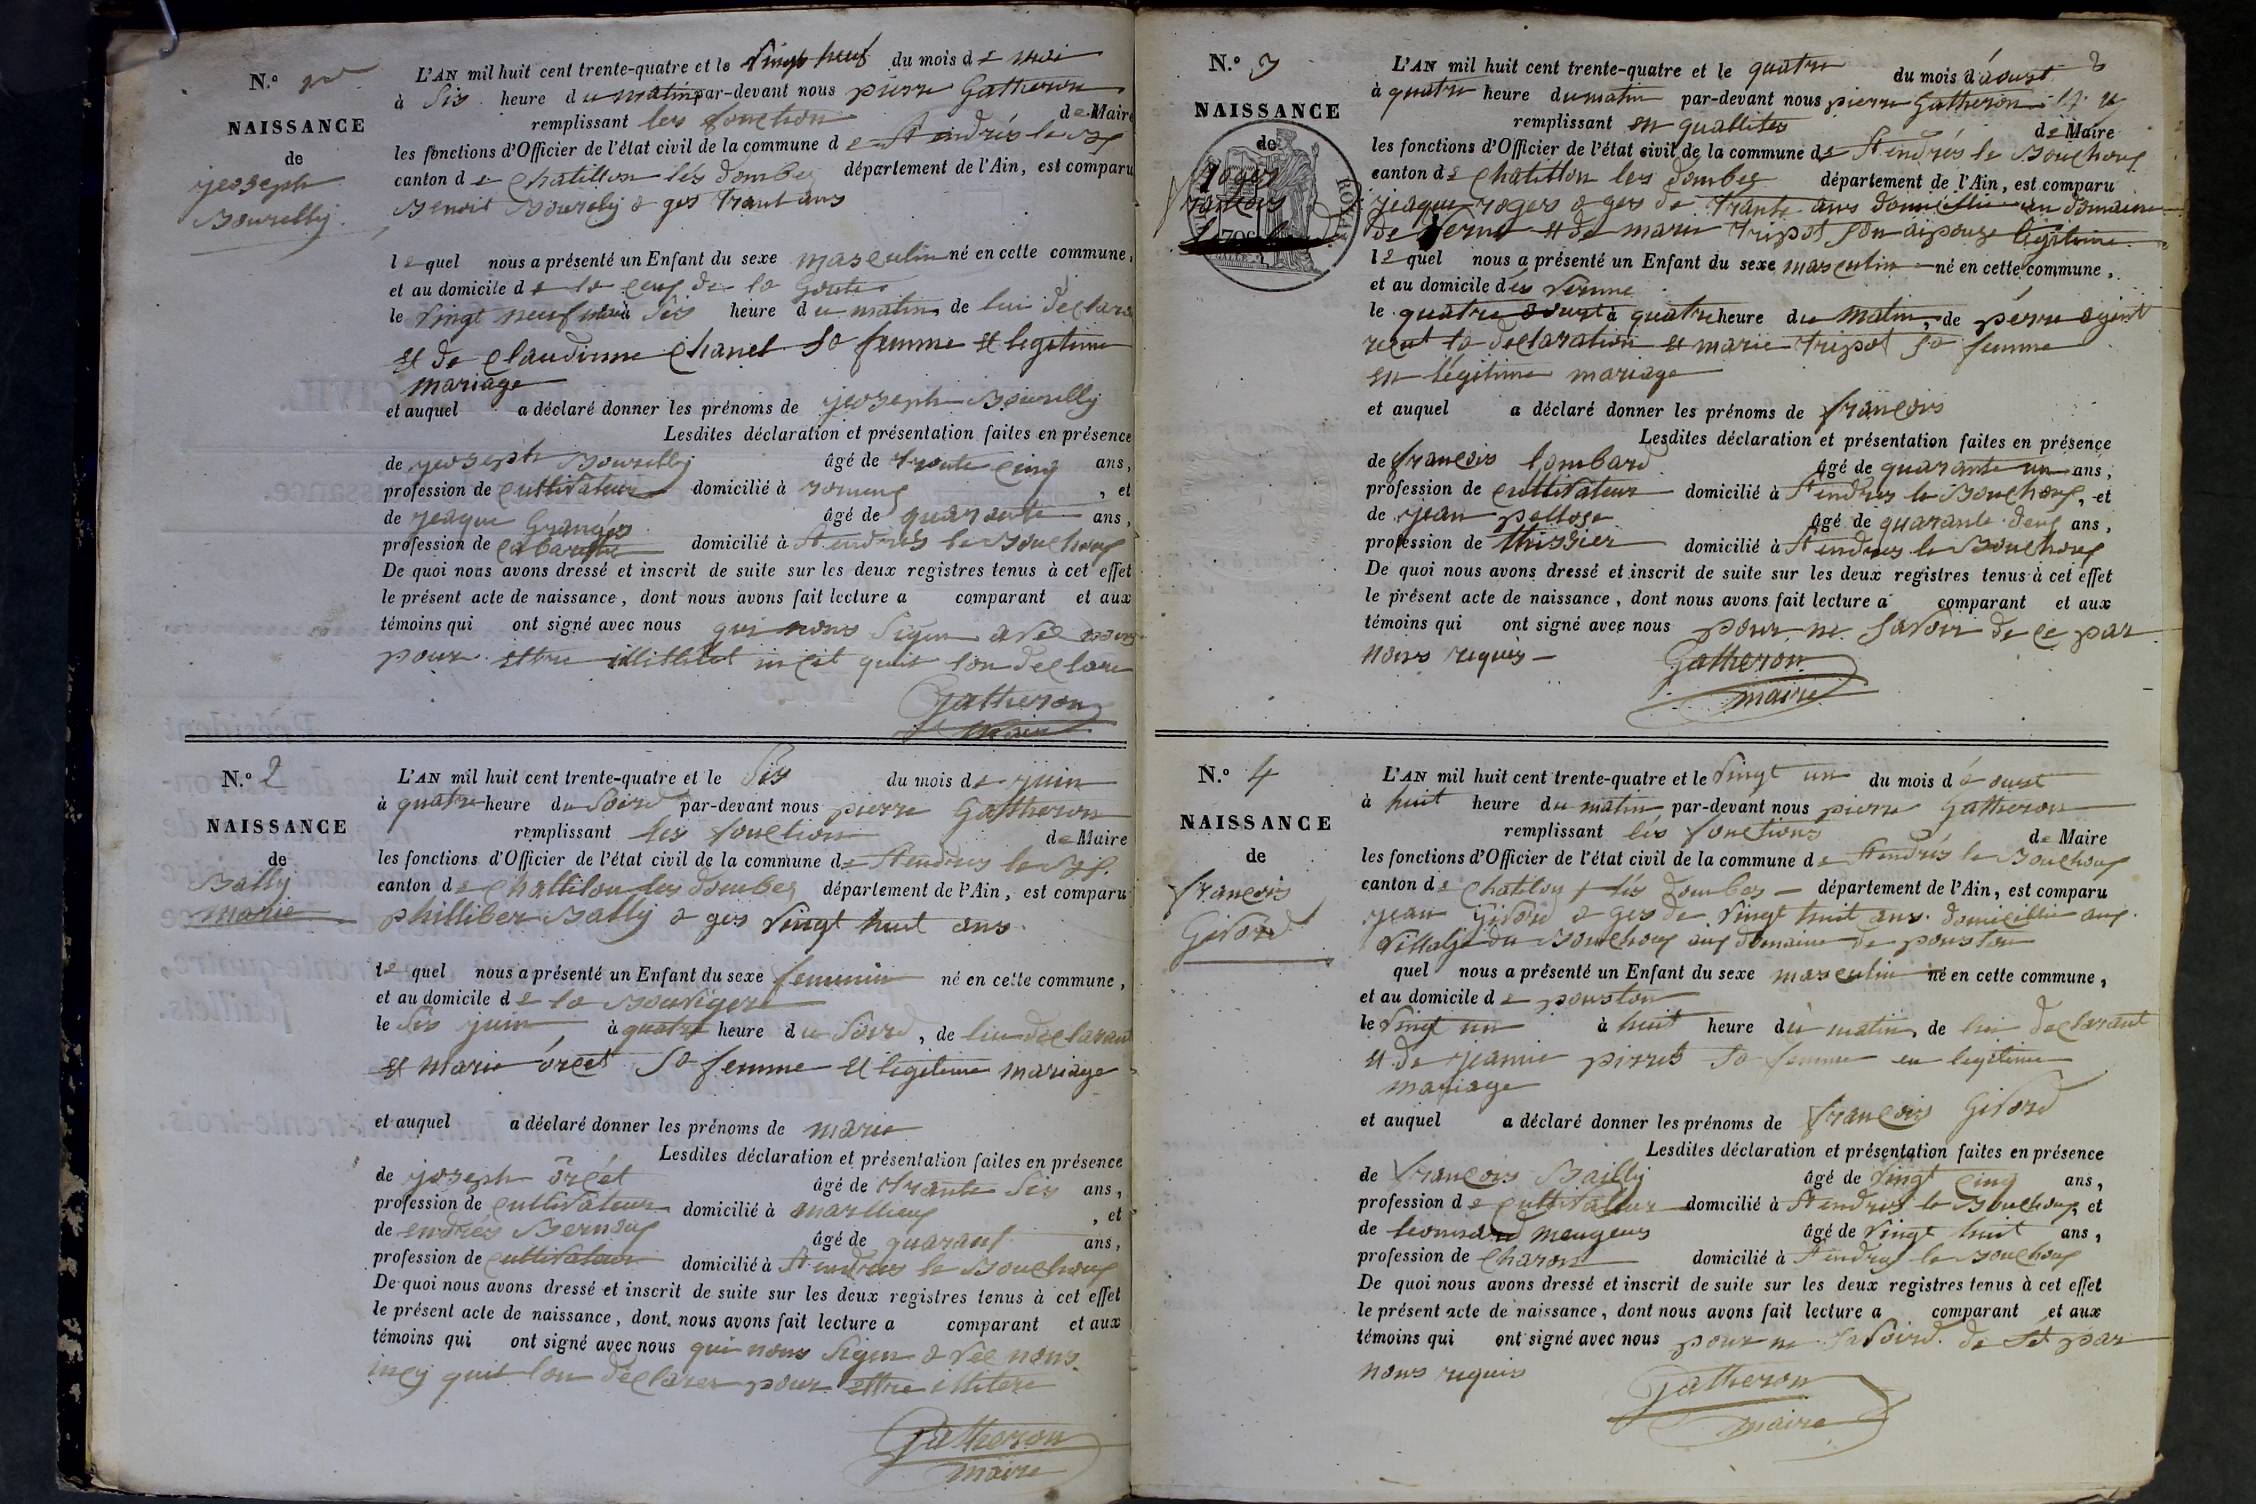 N.º 1er
NAISSANCE
de
jeoseph
Bourelly
L'AN mil huit cent trente-quatre et le vingt neuf du mois de mai
à sis heure du matin par-devant nous pierre Gatheron
remplissant les fonction de Maire
les fonctions d'Officier de l'état civil de la commune de St endrés le
canton de Chatillon les dombes département de l'Ain, est comparu
Benoit Bourelly a ges trant ans
le quel nous a présenté un Enfant du sexe masculin né en cette commune,
et au domicile de la de la Goute
le vingt neuf mai à sis heure du matin, de lui declara
et de Claudinne Chanel sa femme et legitime
mariage
et auquel a déclaré donner les prénoms de jeoseph Bourelly
Lesdites déclaration et présentation faites en présence
de jeoseph Bourelly âgé de trante cinq ans,
profession de cultivateur domicilié à Romans, et
de jeaque Grangés âgé de quarante ans,
profession de domicilié à St endrés le Bouchoux
De quoi nous avons dressé et inscrit de suite sur les deux registres tenus à cet effet
le présent acte de naissance, dont nous avons fait lecture a comparant et aux
témoins qui ont signé avec nous qui nous signe avec
pour ettre quit lon declare
Gatheron
Maire
N.º 2
NAISSANCE
de
Bally
marie
L'AN mil huit cent trente-quatre et le sis du mois de juin
à quatre heure du soird par-devant nous pierre Gattheron
remplissant les fonction de Maire
les fonctions d'Officier de l'état civil de la commune de St endrés le
canton de Chattilon les dombes département de l'Ain, est comparu
philliber Bally a ges vingt huit ans
le quel nous a présenté un Enfant du sexe feminin né en cette commune,
et au domicile de la Bouvigere
le sis juin à quatre heure du soird, de lui declarant
et marie oréet sa femme et legitime mariage
et auquel a déclaré donner les prénoms de marie
Lesdites déclaration et présentation faites en présence
de joseph oréet âgé de trante sis ans,
profession de cultivateur domicilié à marllieux, et
de endrés Bernoux âgé de ans,
profession de cultivateur domicilié à St endrés le Bouchoux
De quoi nous avons dressé et inscrit de suite sur les deux registres tenus à cet effet
le présent acte de naissance, dont nous avons fait lecture a comparant et aux
témoins qui ont signé avec nous qui nous signe avec nous
quit lon déclarer pour ettre
Gatheron
maire
N.º 3
NAISSANCE
de
Roger
francois
ROYAL
L'AN mil huit cent trente-quatre et le quatre du mois d'aoust
à quatre heure du matin par-devant nous pierre Gatheron
remplissant en quallites de Maire
les fonctions d'Officier de l'état civil de la commune de St endrés le Bouchoux
canton de Chatillon les dombes département de l'Ain, est comparu
jeaque roger a ges de trante ans domicilie au domaine
de verne et de marie tripot son aipouze legitime
le quel nous a présenté un Enfant du sexe masculin né en cette commune,
et au domicile dés vernne
le quatre aoust à quatre heure du matin, de
la declaration et marie tripot sa femme
en légitime mariage
et auquel a déclaré donner les prénoms de francois
Lesdites déclaration et présentation faites en présence
de francois lombard âgé de quarante un ans,
profession de cultivateur domicilié à St endrés le Bouchoux, et
de jean pelloge âgé de quarante deux ans,
profession de thissier domicilié à St endres le Bouchoux
De quoi nous avons dressé et inscrit de suite sur les deux registres tenus à cet effet
le présent acte de naissance, dont nous avons fait lecture a comparant et aux
témoins qui ont signé avec nous pour ne savoir de ce par
nous requis
Gatheron
maire
N.º 4
NAISSANCE
de
francois
Givord
L'AN mil huit cent trente-quatre et le vingt un du mois d'aoust
à huit heure du matin par-devant nous pierre Gatheron
remplissant lés fonctions de Maire
les fonctions d'Officier de l'état civil de la commune de St endrés le Bouchoux
canton de Chatilon lés dombes département de l'Ain, est comparu
jean Givord a ges de vingt huit ans domicillie aux
villalge du Bouchoux aux domaine de pouston
quel nous a présenté un Enfant du sexe masculin né en cette commune,
et au domicile de pouston
le vingt un à huit heure du matin, de lui declarant
et de jeannie pirret sa femme en legitime
mariage
et auquel a déclaré donner les prénoms de francois Givord
Lesdites déclaration et présentation faites en présence
de francois Bailly âgé de vingt cinq ans,
profession de cultivateur domicilié à St endrés le Bouchoux, et
de leonnard mengeus âgé de vingt huit ans,
profession de charon domicilié à St endres le Bouchoux
De quoi nous avons dressé et inscrit de suite sur les deux registres tenus à cet effet
le présent acte de naissance, dont nous avons fait lecture a comparant et aux
témoins qui ont signé avec nous pour ne savoird de par
nous requis
Gatheron
maire